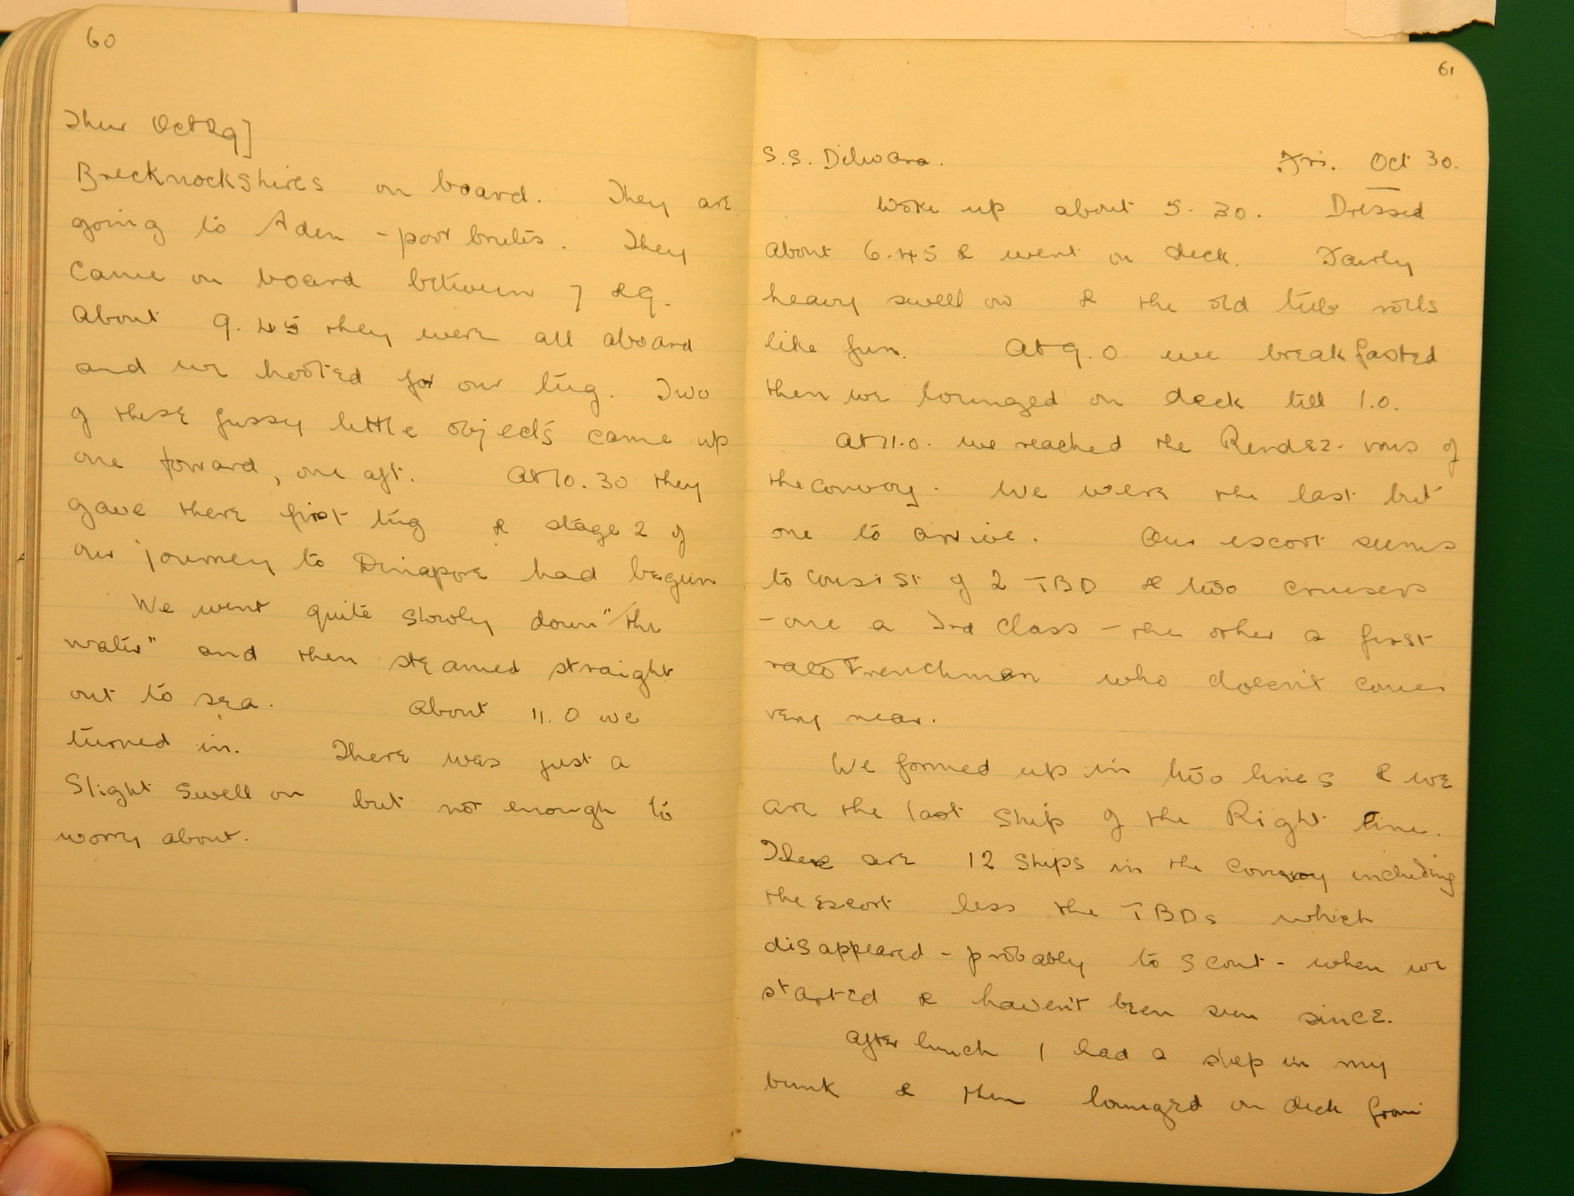 60
Thur Oct 29]
Brecknockshires on board. They are
going to Aden - poor brutes. They
came on board between 7 & 9.
About 9.45 they were all aboard
and we hooted for our tug. Two
of these fussy little objects came up
one forward, one aft. At 10.30 they
gave there first tug & stage 2 of
our journey to Dinapore had begun
We went quite slowly down "the
water" and then steamed straight
out to sea. About 11.0 we
turned in. There was just a
slight swell on but not enough to
worry about.
61
S.S. Dilwara. Fri. Oct 30.
Woke up about 5.30. Dressed
about 6.45 & went on deck. Fairly
heavy swell on & the old tub rolls
like fun. At 9.0 we breakfasted
then we lounged on deck till 1.0.
At 11.0. we reached the Rendez-vous of
the convoy. We were the last but
one to arrive. Our escort seems
to consist of 2 TBD & two cruisers
- one a 3rd class - the other a first
rate Frenchman who doesn't come
very near.
We formed up in two lines & we
are the last ship of the Right line.
There are 12 ships in the convoy including
the escort less the TBDs which
disappeared - probably to scout - when we
started & haven't been seen since.
After lunch I had a sleep in my
bunk & then lounged on deck from